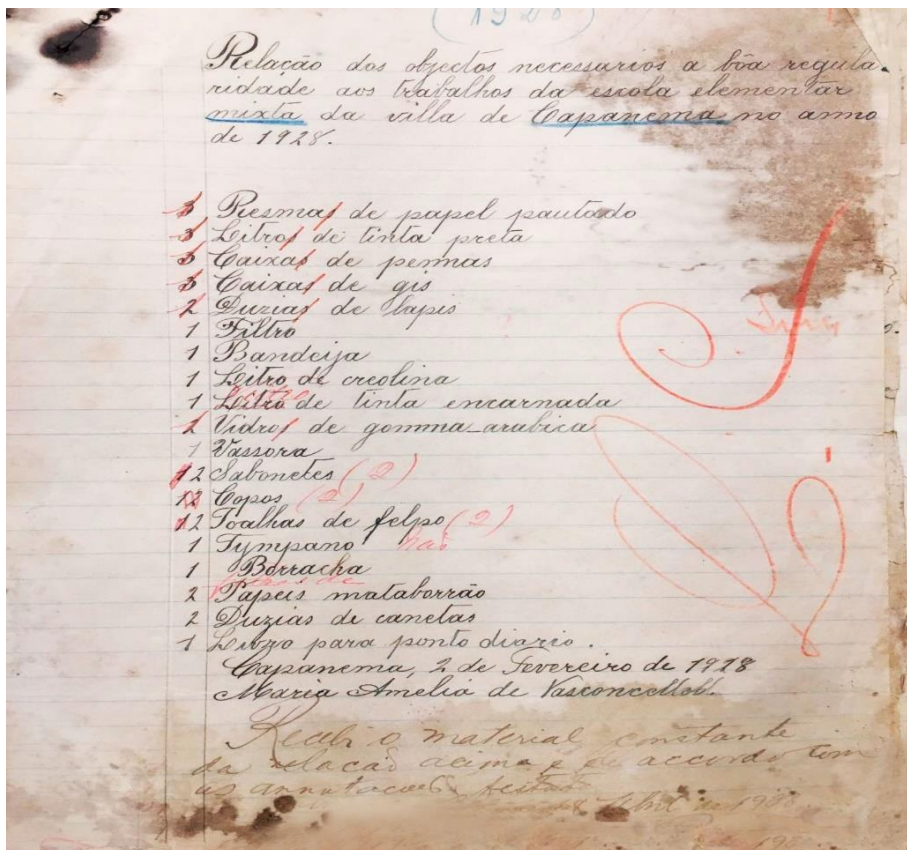 (1928)
Relação dos objectos necessarios a bôa regula-
ridade aos trabalhos da escola elementar
mixta da villa de Capanema no anno
de 1928.
3 Resmas de papel pautado
3 Litros de tinta preta
3 Caixas de pennas
3 Caixas de gis
2 Duzias de lapis
1 Filtro
1 Bandeija
1 Litro de creolina
1 Litro de tinta encarnada
2 Vidros de gomma-arabica
1 Vassora
12 Sabonetes (2)
12 Copos (2)
12 Toalhas de felpo (2)
1 Tympano não
1 Borracha
2 Papeis mataborrão
2 Duzias de canetas
1 Livro para ponto diario.
Capanema, 2 de Fevereiro de 1928
Maria Amelia de Vasconcellos.
Recebi o material constante
da relacão acima e de accordo com
as annotacões feitas